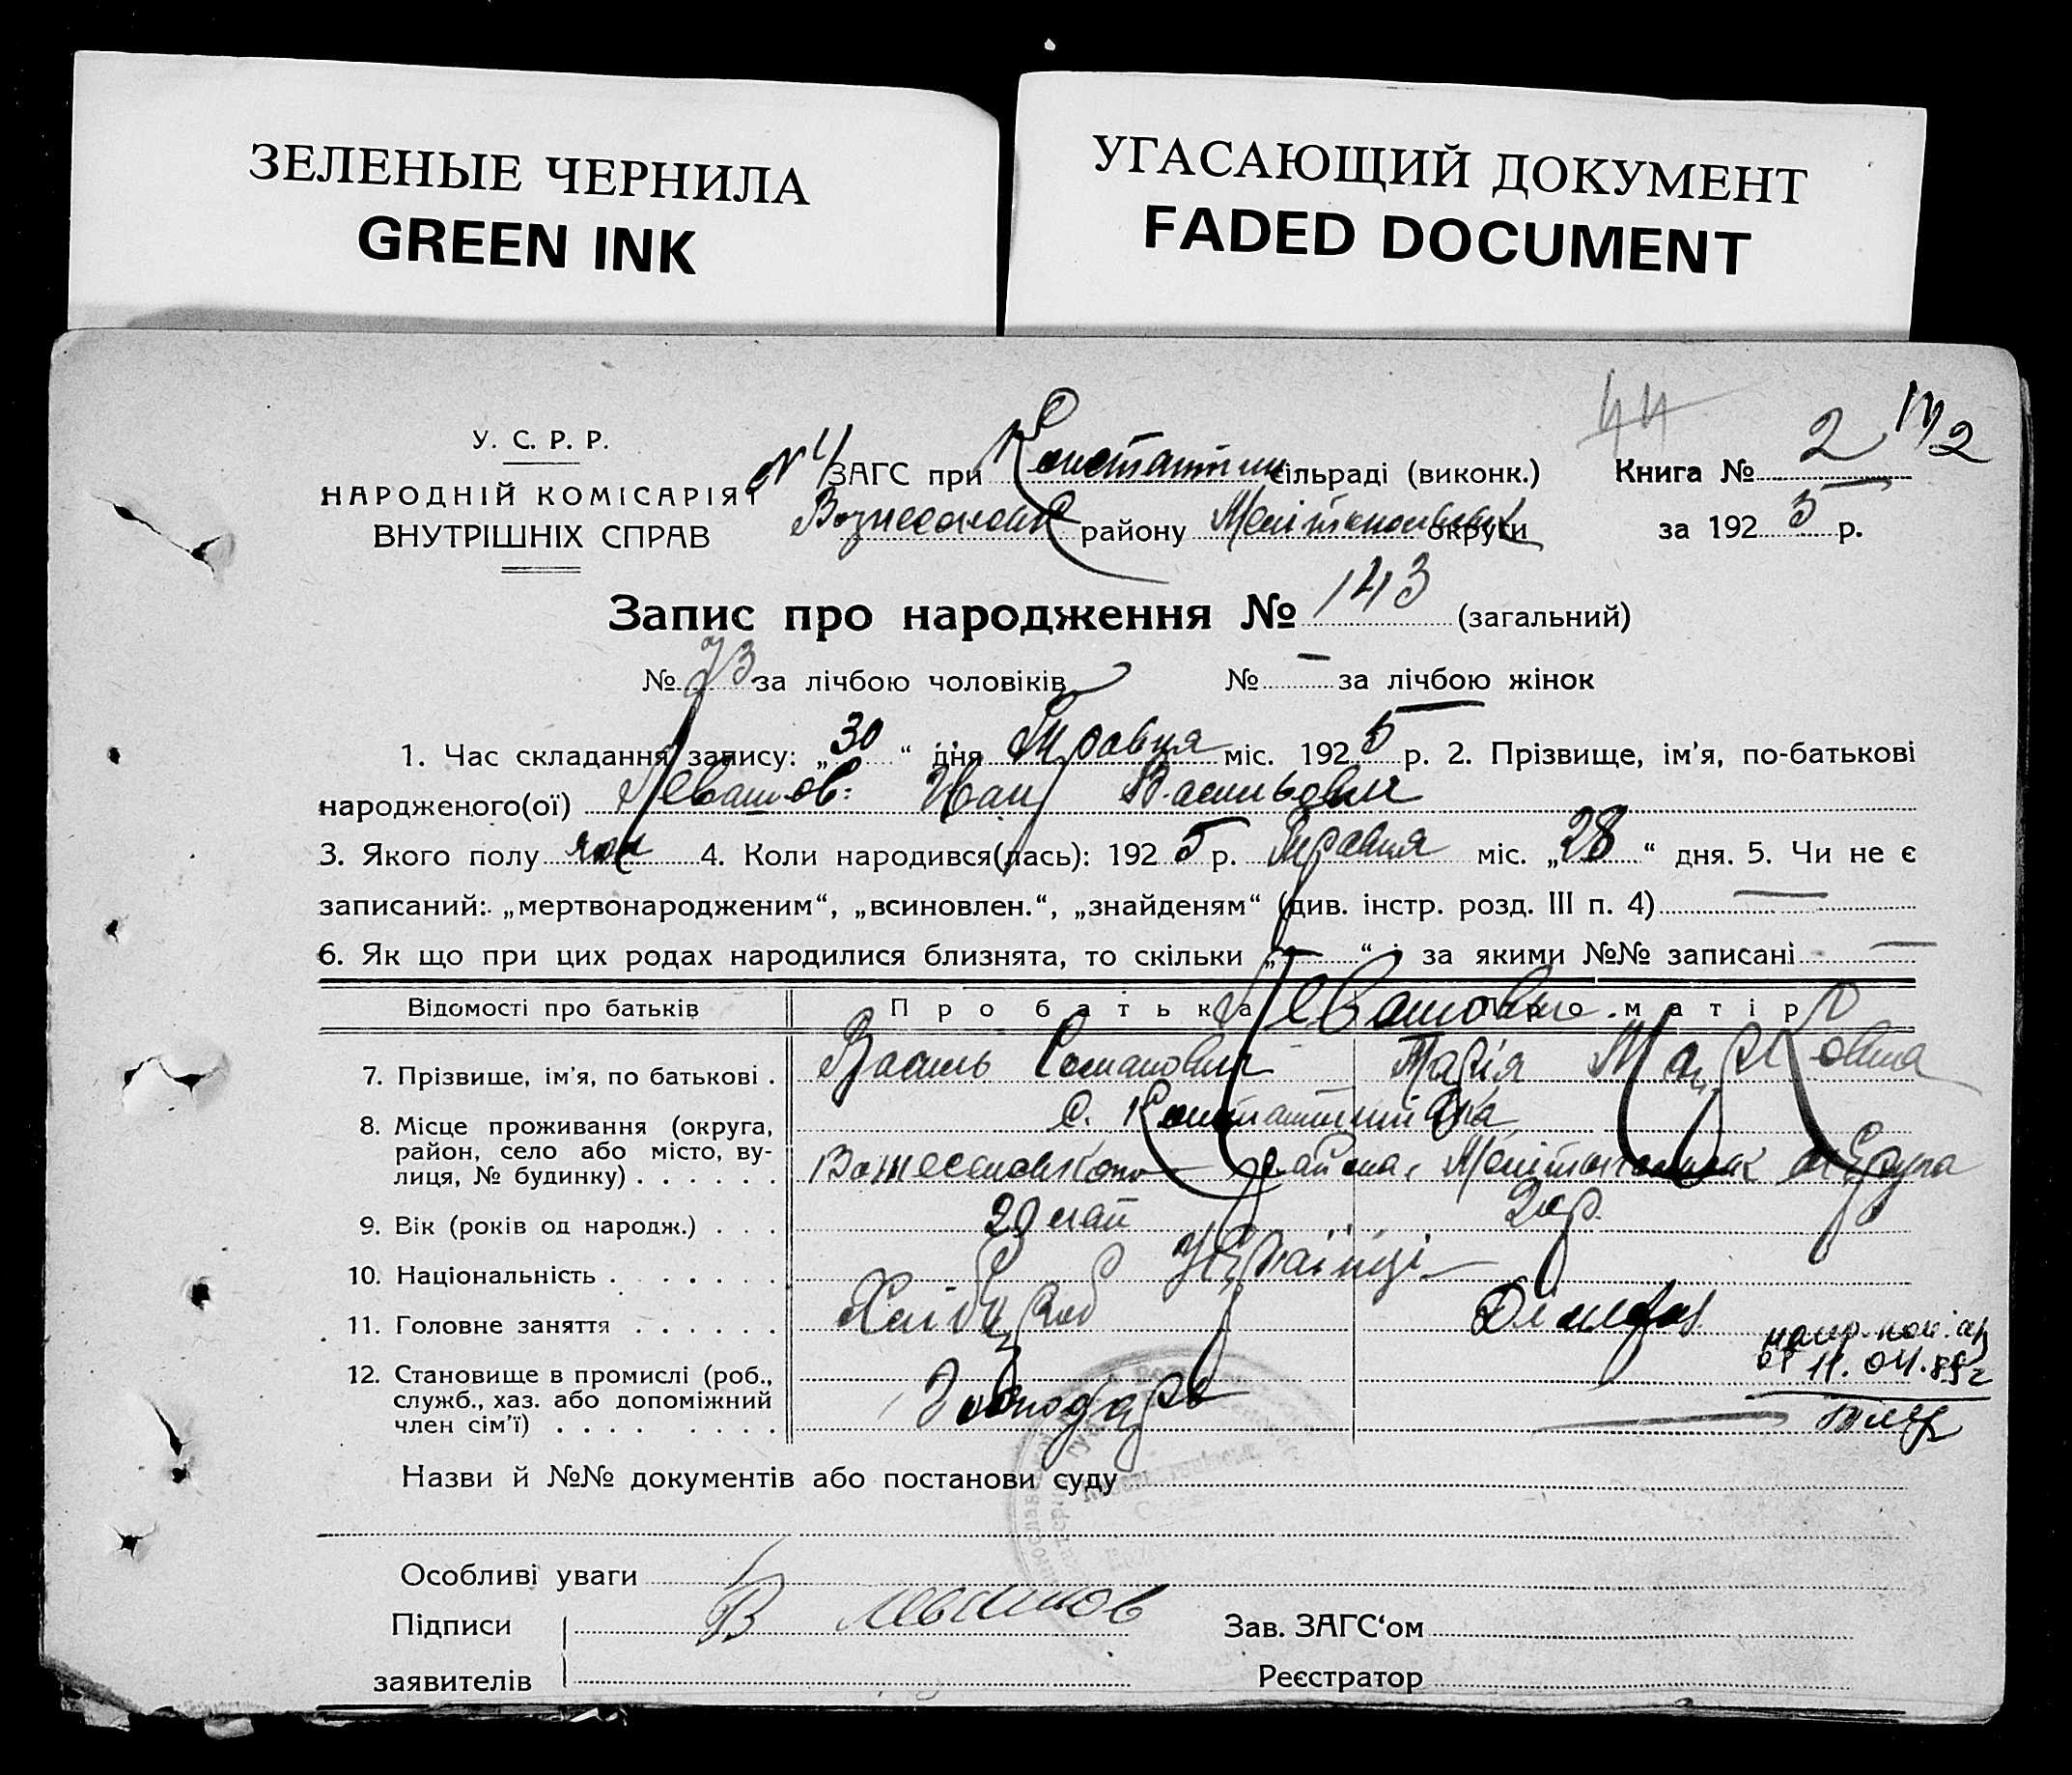 ЗЕЛЕНЫЕ ЧЕРНИЛА
GREEN INK
УГАСАЮЩИЙ ДОКУМЕНТ
FADED DOCUMENT
У. С. Р. Р.
НАРОДНІЙ КОМІСАРІЯТ
ВНУТРІШНІХ СПРАВ
ЗАГС при Константин сільраді (виконк.)
району округи
Книга № 2
за 1925 р.
Запис про народження № 143 (загальний)
№ 73 за лічбою чоловіків № — за лічбою жінок
1. Час складання запису: „30“ дня Травня міс. 1925 р. 2. Прізвище, ім'я, по-батькові
народженого(ої) Левашов Иван Васильович
3. Якого полу чол 4. Коли народився(лась): 1925 р. Травня міс. „28“ дня. 5. Чи не є
записаний: „мертвонародженим“, „всиновлен.“, „знайденям“ (див. інстр. розд. III п. 4) —
6. Як що при цих родах народилися близнята, то скільки „—“ і за якими №№ записані —
Відомості про батьків Про батька Про матір
Левашови
7. Прізвище, ім'я, по батькові . Василь Марія Марковна
8. Місце проживання (округа, район, село або місто, вулиця, № будинку) . . . . . . с. Константинівка
района округа
9. Вік (років од народж.) . . . 29 20 р.
10. Національність . . . . . . Українці
11. Головне заняття . . . . . . Хлібороб
11.04.89 г
12. Становище в промислі (роб., служб., хаз. або допоміжний член сім'ї) . . . . . . . . Господарь
Назви й №№ документів або постанови суду
Особливі уваги
Підписи
заявителів
В Левашов
Зав. ЗАГС'ом
Реєстратор